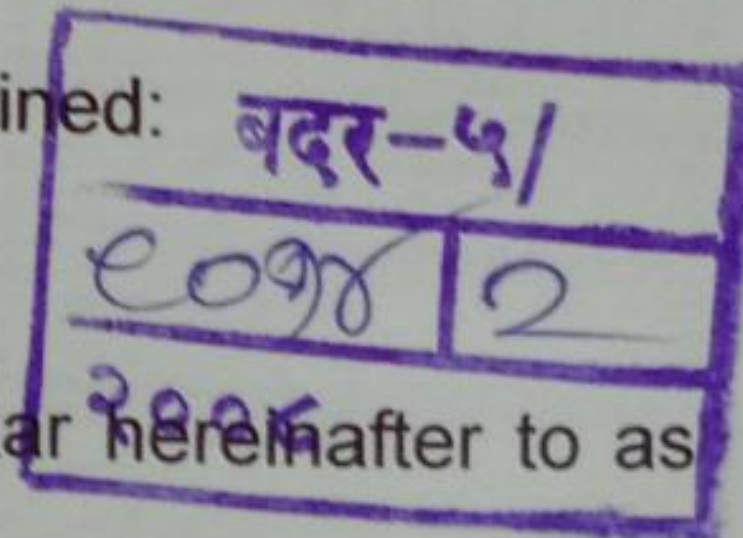 ined: बदर-५/
९०७४ २
ar hereinafter to as